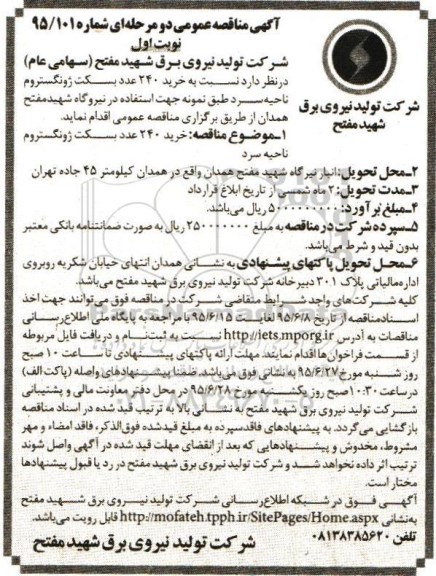 آگهی مناقصه عمومی دو مرحله‌ای شماره ۹۵/۱۰۱
نوبت اول
شرکت تولید نیروی برق شهید مفتح (سهامی عام)
درنظر دارد نسبت به خرید ۲۴۰ عدد بسکت ژونگستروم
ناحیه سرد طبق نمونه جهت استفاده در نیروگاه شهید مفتح
همدان از طریق برگزاری مناقصه عمومی اقدام نماید.
۱ـ موضوع مناقصه: خرید ۲۴۰ عدد بسکت ژونگستروم
ناحیه سرد
شرکت تولید نیروی برق
شهید مفتح
۲ـ محل تحویل: انبار نیروگاه شهید مفتح همدان واقع در همدان کیلومتر ۴۵ جاده تهران
۳ـ مدت تحویل: ۲ ماه شمسی از تاریخ ابلاغ قرارداد
۴ـ مبلغ برآورد: ریال می‌باشد.
۵ـ سپرده شرکت در مناقصه به مبلغ ۲۵۰۰۰۰۰۰۰ ریال به صورت ضمانتنامه بانکی معتبر
بدون قید و شرط می‌باشد.
۶ـ محل تحویل پاکتهای پیشنهادی به نشانی همدان انتهای خیابان شکریه روبروی
اداره مالیاتی پلاک ۳۰۱ دبیرخانه شرکت تولید نیروی برق شهید مفتح می‌باشد.
کلیه شرکت‌های واجد شرایط متقاضی شرکت در مناقصه فوق می‌توانند جهت اخذ
اسناد مناقصه از تاریخ ۹۵/۶/۸ لغایت ۹۵/۶/۱۵ با مراجعه به پایگاه ملی اطلاع‌رسانی
مناقصات به آدرس http://iets.mporg.ir نسبت به ثبت‌نام و دریافت فایل مربوطه
از قسمت فراخوان‌ها اقدام نمایند. مهلت ارائه پاکتهای پیشنهادی تا ساعت ۱۰ صبح
روز شنبه مورخ ۹۵/۶/۲۷ به نشانی فوق می‌باشد. ضمنا پیشنهادهای واصله (پاکت الف)
در ساعت ۱۰:۳۰ صبح روز ۹۵/۶/۲۸ در محل دفتر معاونت مالی و پشتیبانی
شرکت تولید نیروی برق شهید مفتح به نشانی بالا به ترتیب قید شده در اسناد مناقصه
بازگشایی می‌گردد. به پیشنهادهای فاقد سپرده به مبلغ قید شده فوق‌الذکر، فاقد امضاء و مهر
مشروط، مخدوش و پیشنهادهایی که بعد از انقضای مهلت قید شده در آگهی واصل شوند
ترتیب اثر داده نخواهد شد و شرکت تولید نیروی برق شهید مفتح در رد یا قبول پیشنهادها
مختار است.
آگهی فوق در شبکه اطلاع‌رسانی شرکت تولید نیروی برق شهید مفتح
به نشانی http://mofateh.tpph.ir/SitePages/Home.aspx قابل رویت می‌باشد.
تلفن ۰۸۱۳۸۳۸۵۶۲۰
شرکت تولید نیروی برق شهید مفتح